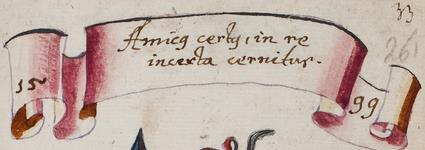 33
261
Amicg certg, in re
incerta cernitur.
15 99